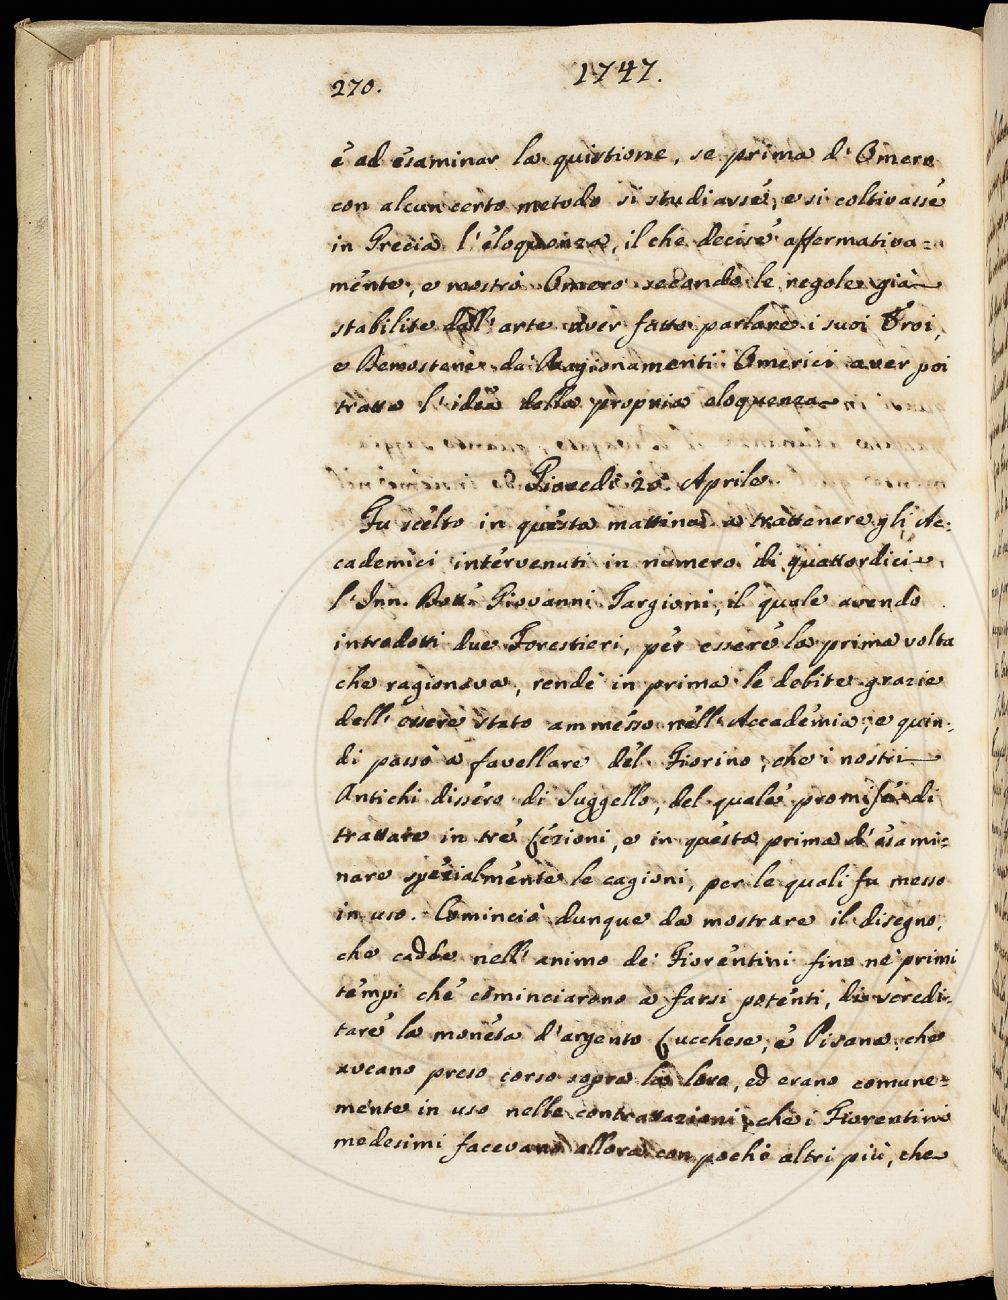 270.
1747.
e ad esaminar la quistione, se prima d'Omero
con alcun certo metodo si studiasse, e si coltivasse
in Grecia l'eloquenza, il che decise affermativa=
mente, e mostrò Omero secondo le regole già
stabilite dall'arte aver fatto parlare i suoi Eroi,
e Demostene da' Ragionamenti Omerici aver poi
tratto l'idea della propria eloquenza
Giovedì 20. Aprile.
Fu scelto in questa mattina a trattenere gli Ac=
cademici intervenuti in numero di quattordici
l'Inn. Dott. Giovanni Targioni, il quale avendo
introdotti due Forestieri, per essere la prima volta
che ragionava, rendè in prima le debite grazie
dell'essere stato ammesso nell'Accademia, e quin=
di passò a favellare del Fiorino, che i nostri
Antichi dissero di Suggello, del quale promise di
trattare in tre Lezioni, e in questa prima d'esami=
nare spezialmente le cagioni, per le quali fu messo
in uso. Cominciò dunque da mostrare il disegno,
che cadde nell'animo de' Fiorentini fino ne' primi
tempi che cominciarono a farsi potenti, di scredi=
tare la moneta d'argento Lucchese, e Pisana, che
aveano preso corso sopra la loro, ed erano comune=
mente in uso nelle contrattazioni, che i Fiorentini
medesimi facevano allora con pochi altri più, che